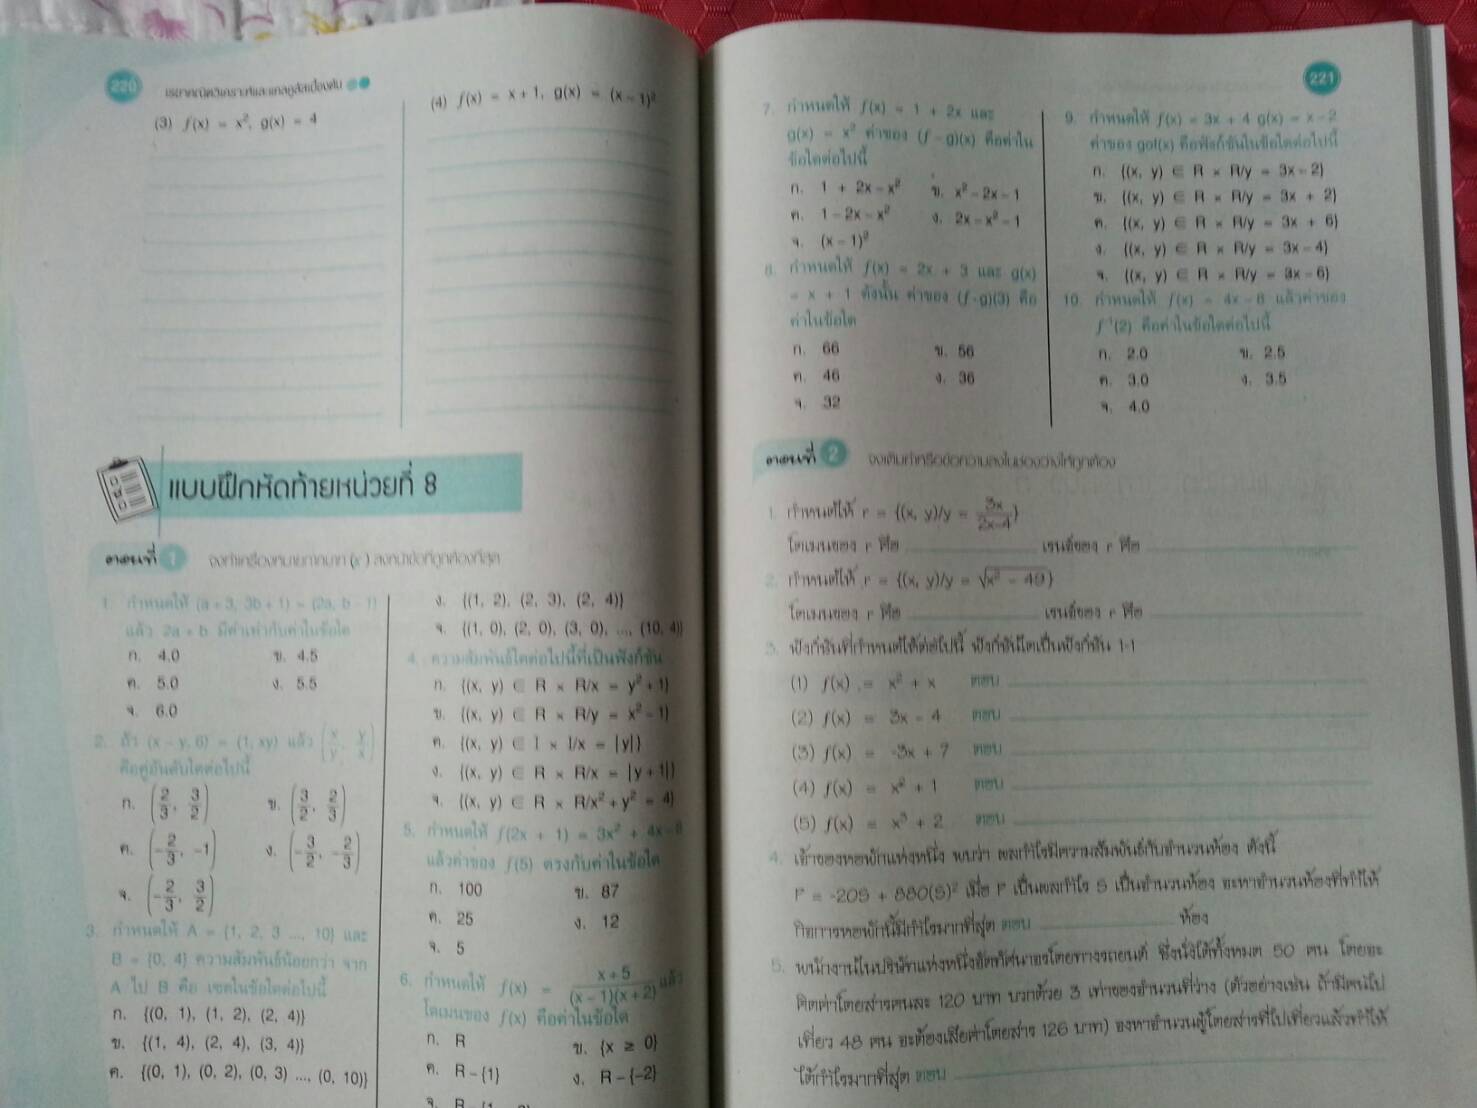 220 เรขาคณิตวิเคราะห์และแคลคูลัสเบื้องต้น
(3) f(x) = x², g(x) = 4
(4) f(x) = x + 1, g(x) = (x − 1)²
แบบฝึกหัดท้ายหน่วยที่ 8
ตอนที่ 1 จงทำเครื่องหมายกากบาท (x) ลงหน้าข้อที่ถูกต้องที่สุด
1. กำหนดให้ (a + 3, 3b + 1) = (2a, b − 1)
แล้ว 2a + b มีค่าเท่ากับค่าในข้อใด
ก. 4.0 ข. 4.5
ค. 5.0 ง. 5.5
จ. 6.0
2. ถ้า (x − y, 6) = (1, xy) แล้ว (x/y, y/x)
คือคู่อันดับใดต่อไปนี้
ก. (2/3, 3/2) ข. (3/2, 2/3)
ค. (−2/3, −1) ง. (−3/2, −2/3)
จ. (−2/3, 3/2)
3. กำหนดให้ A = {1, 2, 3 ..., 10} และ
B = {0, 4} ความสัมพันธ์น้อยกว่า จาก
A ไป B คือ เซตในข้อใดต่อไปนี้
ก. {(0, 1), (1, 2), (2, 4)}
ข. {(1, 4), (2, 4), (3, 4)}
ค. {(0, 1), (0, 2), (0, 3) ..., (0, 10)}
ง. {(1, 2), (2, 3), (2, 4)}
จ. {(1, 0), (2, 0), (3, 0), ..., (10, 4)}
4. ความสัมพันธ์ใดต่อไปนี้ที่เป็นฟังก์ชัน
ก. {(x, y) ∈ R × R/x = y² + 1}
ข. {(x, y) ∈ R × R/y = x² − 1}
ค. {(x, y) ∈ I × I/x = |y|}
ง. {(x, y) ∈ R × R/x = |y + 1|}
จ. {(x, y) ∈ R × R/x² + y² = 4}
5. กำหนดให้ f(2x + 1) = 3x² + 4x − 8
แล้วค่าของ f(5) ตรงกับค่าในข้อใด
ก. 100 ข. 87
ค. 25 ง. 12
จ. 5
6. กำหนดให้ f(x) = x + 5/(x − 1)(x + 2) แล้ว
โดเมนของ f(x) คือค่าในข้อใด
ก. R ข. {x ≥ 0}
ค. R − {1} ง. R − {−2}
221
7. กำหนดให้ f(x) = 1 + 2x และ
g(x) = x² ค่าของ (f − g)(x) คือค่าใน
ข้อใดต่อไปนี้
ก. 1 + 2x − x² ข. x² − 2x − 1
ค. 1 − 2x − x² ง. 2x − x² − 1
จ. (x − 1)²
8. กำหนดให้ f(x) = 2x + 3 และ g(x)
= x + 1 ดังนั้น ค่าของ (f·g)(3) คือ
ค่าในข้อใด
ก. 66 ข. 56
ค. 46 ง. 36
จ. 32
9. กำหนดให้ f(x) = 3x + 4 g(x) = x − 2
ค่าของ gof(x) คือฟังก์ชันในข้อใดต่อไปนี้
ก. {(x, y) ∈ R × R/y = 3x − 2}
ข. {(x, y) ∈ R × R/y = 3x + 2}
ค. {(x, y) ∈ R × R/y = 3x + 6}
ง. {(x, y) ∈ R × R/y = 3x − 4}
จ. {(x, y) ∈ R × R/y = 3x − 6}
10. กำหนดให้ f(x) = 4x − 8 แล้วค่าของ
f⁻¹(2) คือค่าในข้อใดต่อไปนี้
ก. 2.0 ข. 2.5
ค. 3.0 ง. 3.5
จ. 4.0
ตอนที่ 2 จงเติมคำหรือข้อความลงในช่องว่างให้ถูกต้อง
1. กำหนดให้ r = {(x, y)/y = 3x/2x−4}
โดเมนของ r คือ เรนจ์ของ r คือ
2. กำหนดให้ r = {(x, y)/y = √x² − 49}
โดเมนของ r คือ เรนจ์ของ r คือ
3. ฟังก์ชันที่กำหนดให้ต่อไปนี้ ฟังก์ชันใดเป็นฟังก์ชัน 1-1
(1) f(x) = x² + x ตอบ
(2) f(x) = 3x − 4 ตอบ
(3) f(x) = -3x + 7 ตอบ
(4) f(x) = x² + 1 ตอบ
(5) f(x) = x³ + 2 ตอบ
4. เจ้าของหอพักแห่งหนึ่ง พบว่า ผลกำไรมีความสัมพันธ์กับจำนวนห้อง ดังนี้
P = −20S + 880(S)² เมื่อ P เป็นผลกำไร S เป็นจำนวนห้อง จะหาจำนวนห้องที่ทำให้
กิจการหอพักนี้มีกำไรมากที่สุด ตอบ ห้อง
5. พนักงานในบริษัทแห่งหนึ่งจัดทัศนาจรโดยทางรถยนต์ ซึ่งนั่งได้ทั้งหมด 50 คน โดยจะ
คิดค่าโดยสารคนละ 120 บาท บวกด้วย 3 เท่าของจำนวนที่ว่าง (ตัวอย่างเช่น ถ้ามีคนไป
เที่ยว 48 คน จะต้องเสียค่าโดยสาร 126 บาท) จงหาจำนวนผู้โดยสารที่ไปเที่ยวแล้วทำให้
ได้กำไรมากที่สุด ตอบ